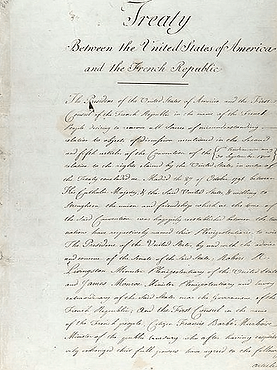 Treaty
Between the United States of America
and the French Republic
The President of the United States of America and the First
Consul of the French Republic in the name of the French
People desiring to remove all Source of misunderstanding
relative to objects of discussion mentioned in the second
and fifth articles of the Convention of the
30 September 1800
relative to the rights claimed by the United States in virtue of
the Treaty concluded at Madrid the 27 of October 1795 between
His Catholic Majesty, & the said United States, & willing to
Strengthen the union and friendship which at the time of
the said Convention was happily reestablished between the two
nations have respectively named their Plenipotentiaries to wit
The President of the United States, by and with the advice
and consent of the Senate of the said States, Robert R.
Livingston Minister Plenipotentiary of the United States
and James Monroe Minister Plenipotentiary and Envoy
extraordinary of the said States near the Government of the
French Republic; And the First Consul in the name
of the French people, Citizen Francis Barbé Marbois
Minister of the public treasury who after having respecti-
vely exchanged their full powers have agreed to the following
articles